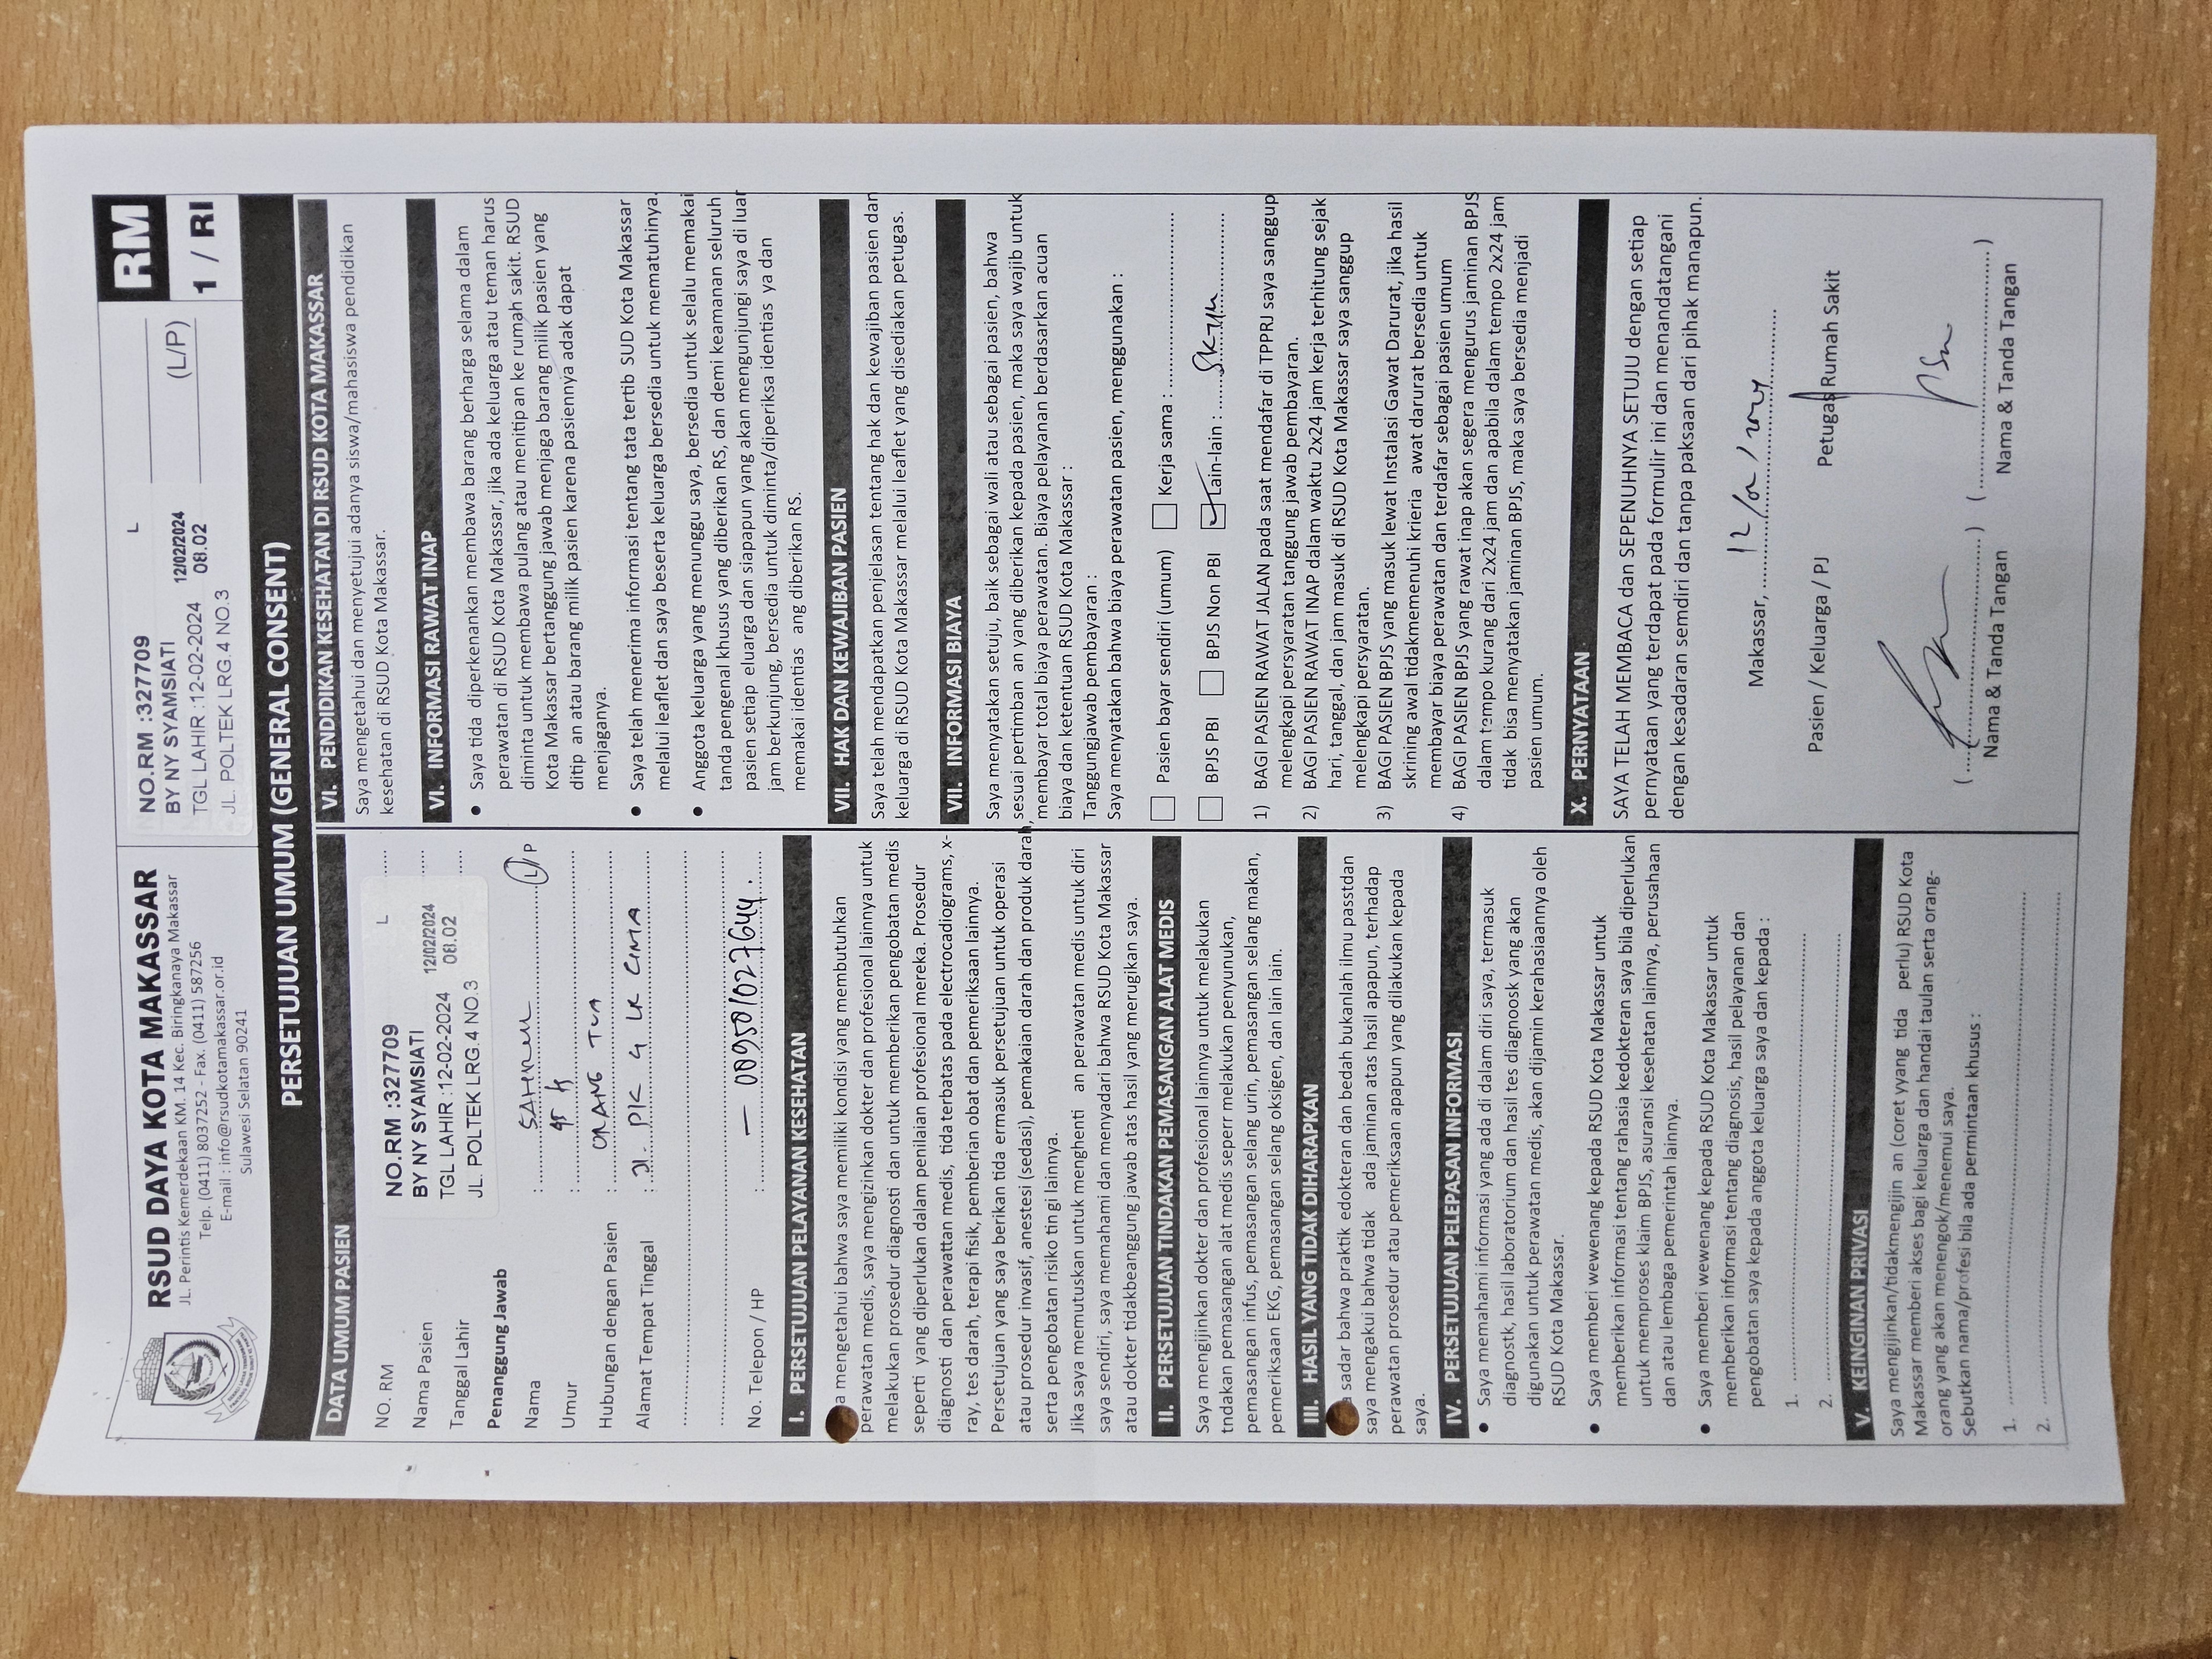 RSUD DAYA KOTA MAKASSAR
JL. Perintis Kemerdekaan KM. 14 Kec. Biringkanaya Makassar
Telp. (0411) 8037252 - Fax. (0411) 587256
E-mail : info@rsudkotamakassar.or.id
Sulawesi Selatan 90241
NO.RM :327709 L
BY NY SYAMSIATI
TGL LAHIR :12-02-2024 12/02/2024 08.02
JL. POLTEK LRG.4 NO.3
(L/P)
RM
1 / RI
PERSETUJUAN UMUM (GENERAL CONSENT)
DATA UMUM PASIEN
NO. RM
Nama Pasien
Tanggal Lahir
NO.RM :327709 L
BY NY SYAMSIATI
TGL LAHIR :12-02-2024 12/02/2024 08.02
JL. POLTEK LRG.4 NO.3
Penanggung Jawab
Nama : L/P
Umur : 45
Hubungan dengan Pasien : ORANG TUA
Alamat Tempat Tinggal : Jl. PK 4 LR
No. Telepon / HP :
I. PERSETUJUAN PELAYANAN KESEHATAN
a mengetahui bahwa saya memiliki kondisi yang membutuhkan
perawatan medis, saya mengizinkan dokter dan profesional lainnya untuk
melakukan prosedur diagnosti dan untuk memberikan pengobatan medis
seperti yang diperlukan dalam penilaian profesional mereka. Prosedur
diagnosti dan perawattan medis, tida terbatas pada electrocadiograms, x-
ray, tes darah, terapi fisik, pemberian obat dan pemeriksaan lainnya.
Persetujuan yang saya berikan tida ermasuk persetujuan untuk operasi
atau prosedur invasif, anestesi (sedasi), pemakaian darah dan produk darah,
serta pengobatan risiko tin gi lainnya.
Jika saya memutuskan untuk menghenti an perawatan medis untuk diri
saya sendiri, saya memahami dan menyadari bahwa RSUD Kota Makassar
atau dokter tidakbeanggung jawab atas hasil yang merugikan saya.
II. PERSETUJUAN TINDAKAN PEMASANGAN ALAT MEDIS
Saya mengijinkan dokter dan profesional lainnya untuk melakukan
tndakan pemasangan alat medis seperr melakukan penyunukan,
pemasangan infus, pemasangan selang urin, pemasangan selang makan,
pemeriksaan EKG, pemasangan selang oksigen, dan lain lain.
III. HASIL YANG TIDAK DIHARAPKAN
a sadar bahwa praktik edokteran dan bedah bukanlah ilmu passtdan
saya mengakui bahwa tidak ada jaminan atas hasil apapun, terhadap
perawatan prosedur atau pemeriksaan apapun yang dilakukan kepada
saya.
IV. PERSETUJUAN PELEPASAN INFORMASI
● Saya memahami informasi yang ada di dalam diri saya, termasuk
diagnostk, hasil laboratorium dan hasil tes diagnoosk yang akan
digunakan untuk perawatan medis, akan dijamin kerahasiaannya oleh
RSUD Kota Makassar.
● Saya memberi wewenang kepada RSUD Kota Makassar untuk
memberikan informasi tentang rahasia kedokteran saya bila diperlukan
untuk memproses klaim BPJS, asuransi kesehatan lainnya, perusahaan
dan atau lembaga pemerintah lainnya.
● Saya memberi wewenang kepada RSUD Kota Makassar untuk
memberikan informasi tentang diagnosis, hasil pelayanan dan
pengobatan saya kepada anggota keluarga saya dan kepada :
1.
2.
V. KEINGINAN PRIVASI
Saya mengijinkan/tidakmengijin an (coret yyang tida perlu) RSUD Kota
Makassar memberi akses bagi keluarga dan handai taulan serta orang-
orang yang akan menengok/menemui saya.
Sebutkan nama/profesi bila ada permintaan khusus :
1.
2.
VI. PENDIDIKAN KESEHATAN DI RSUD KOTA MAKASSAR
Saya mengetahui dan menyetujui adanya siswa/mahasiswa pendidikan
kesehatan di RSUD Kota Makassar.
VI. INFORMASI RAWAT INAP
● Saya tida diperkenankan membawa barang berharga selama dalam
perawatan di RSUD Kota Makassar, jika ada keluarga atau teman harus
diminta untuk membawa pulang atau menitip an ke rumah sakit. RSUD
Kota Makassar bertanggung jawab menjaga barang milik pasien yang
ditip an atau barang milik pasien karena pasiennya adak dapat
menjaganya.
● Saya telah menerima informasi tentang tata tertib SUD Kota Makassar
melalui leaflet dan saya beserta keluarga bersedia untuk mematuhinya.
● Anggota keluarga yang menunggu saya, bersedia untuk selalu memakai
tanda pengenal khusus yang diberikan RS, dan demi keamanan seluruh
pasien setiap eluarga dan siapapun yang akan mengunjungi saya di luar
jam berkunjung, bersedia untuk diminta/diperiksa identias ya dan
memakai identias ang diberikan RS.
VII. HAK DAN KEWAJIBAN PASIEN
Saya telah mendapatkan penjelasan tentang hak dan kewajiban pasien dan
keluarga di RSUD Kota Makassar melalui leaflet yang disediakan petugas.
VII. INFORMASI BIAYA
Saya menyatakan setuju, baik sebagai wali atau sebagai pasien, bahwa
sesuai pertimban an yang diberikan kepada pasien, maka saya wajib untuk
membayar total biaya perawatan. Biaya pelayanan berdasarkan acuan
biaya dan ketentuan RSUD Kota Makassar :
Tanggungjawab pembayaran :
Saya menyatakan bahwa biaya perawatan pasien, menggunakan :
Pasien bayar sendiri (umum) Kerja sama :
BPJS PBI BPJS Non PBI Lain-lain :
1) BAGI PASIEN RAWAT JALAN pada saat mendafar di TPPRJ saya sanggup
melengkapi persyaratan tanggung jawab pembayaran.
2) BAGI PASIEN RAWAT INAP dalam waktu 2x24 jam kerja terhitung sejak
hari, tanggal, dan jam masuk di RSUD Kota Makassar saya sanggup
melengkapi persyaratan.
3) BAGI PASIEN BPJS yang masuk lewat Instalasi Gawat Darurat, jika hasil
skrining awal tidakmemenuhi krieria awat darurat bersedia untuk
membayar biaya perawatan dan terdafar sebagai pasien umum
4) BAGI PASIEN BPJS yang rawat inap akan segera mengurus jaminan BPJS
dalam tempo kurang dari 2x24 jam dan apabila dalam tempo 2x24 jam
tidak bisa menyatakan jaminan BPJS, maka saya bersedia menjadi
pasien umum.
X. PERNYATAAN
SAYA TELAH MEMBACA dan SEPENUHNYA SETUJU dengan setiap
pernyataan yang terdapat pada formulir ini dan menandatangani
dengan kesadaran semdiri dan tanpa paksaan dari pihak manapun.
Makassar, 12/02/2024
Pasien / Keluarga / PJ Petugas Rumah Sakit
Nama & Tanda Tangan Nama & Tanda Tangan